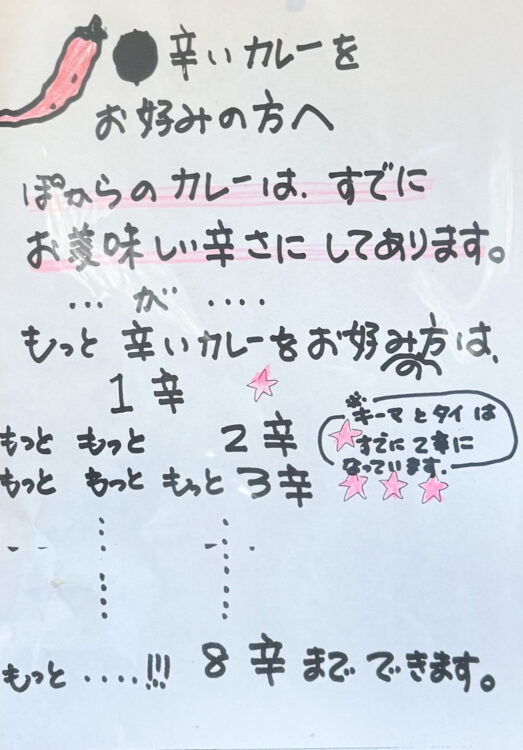 辛いカレーを
お好みの方へ
ぽからのカレーは、すでに
お美味しい辛さにしてあります。
… が ‥‥
もっと 辛いカレーをお好みの方は、
1辛
もっと もっと 2辛
もっと もっと もっと 3辛
※キーマとタイは
すでに2辛に
なっています.
もっと ‥‥!!! 8辛までできます。